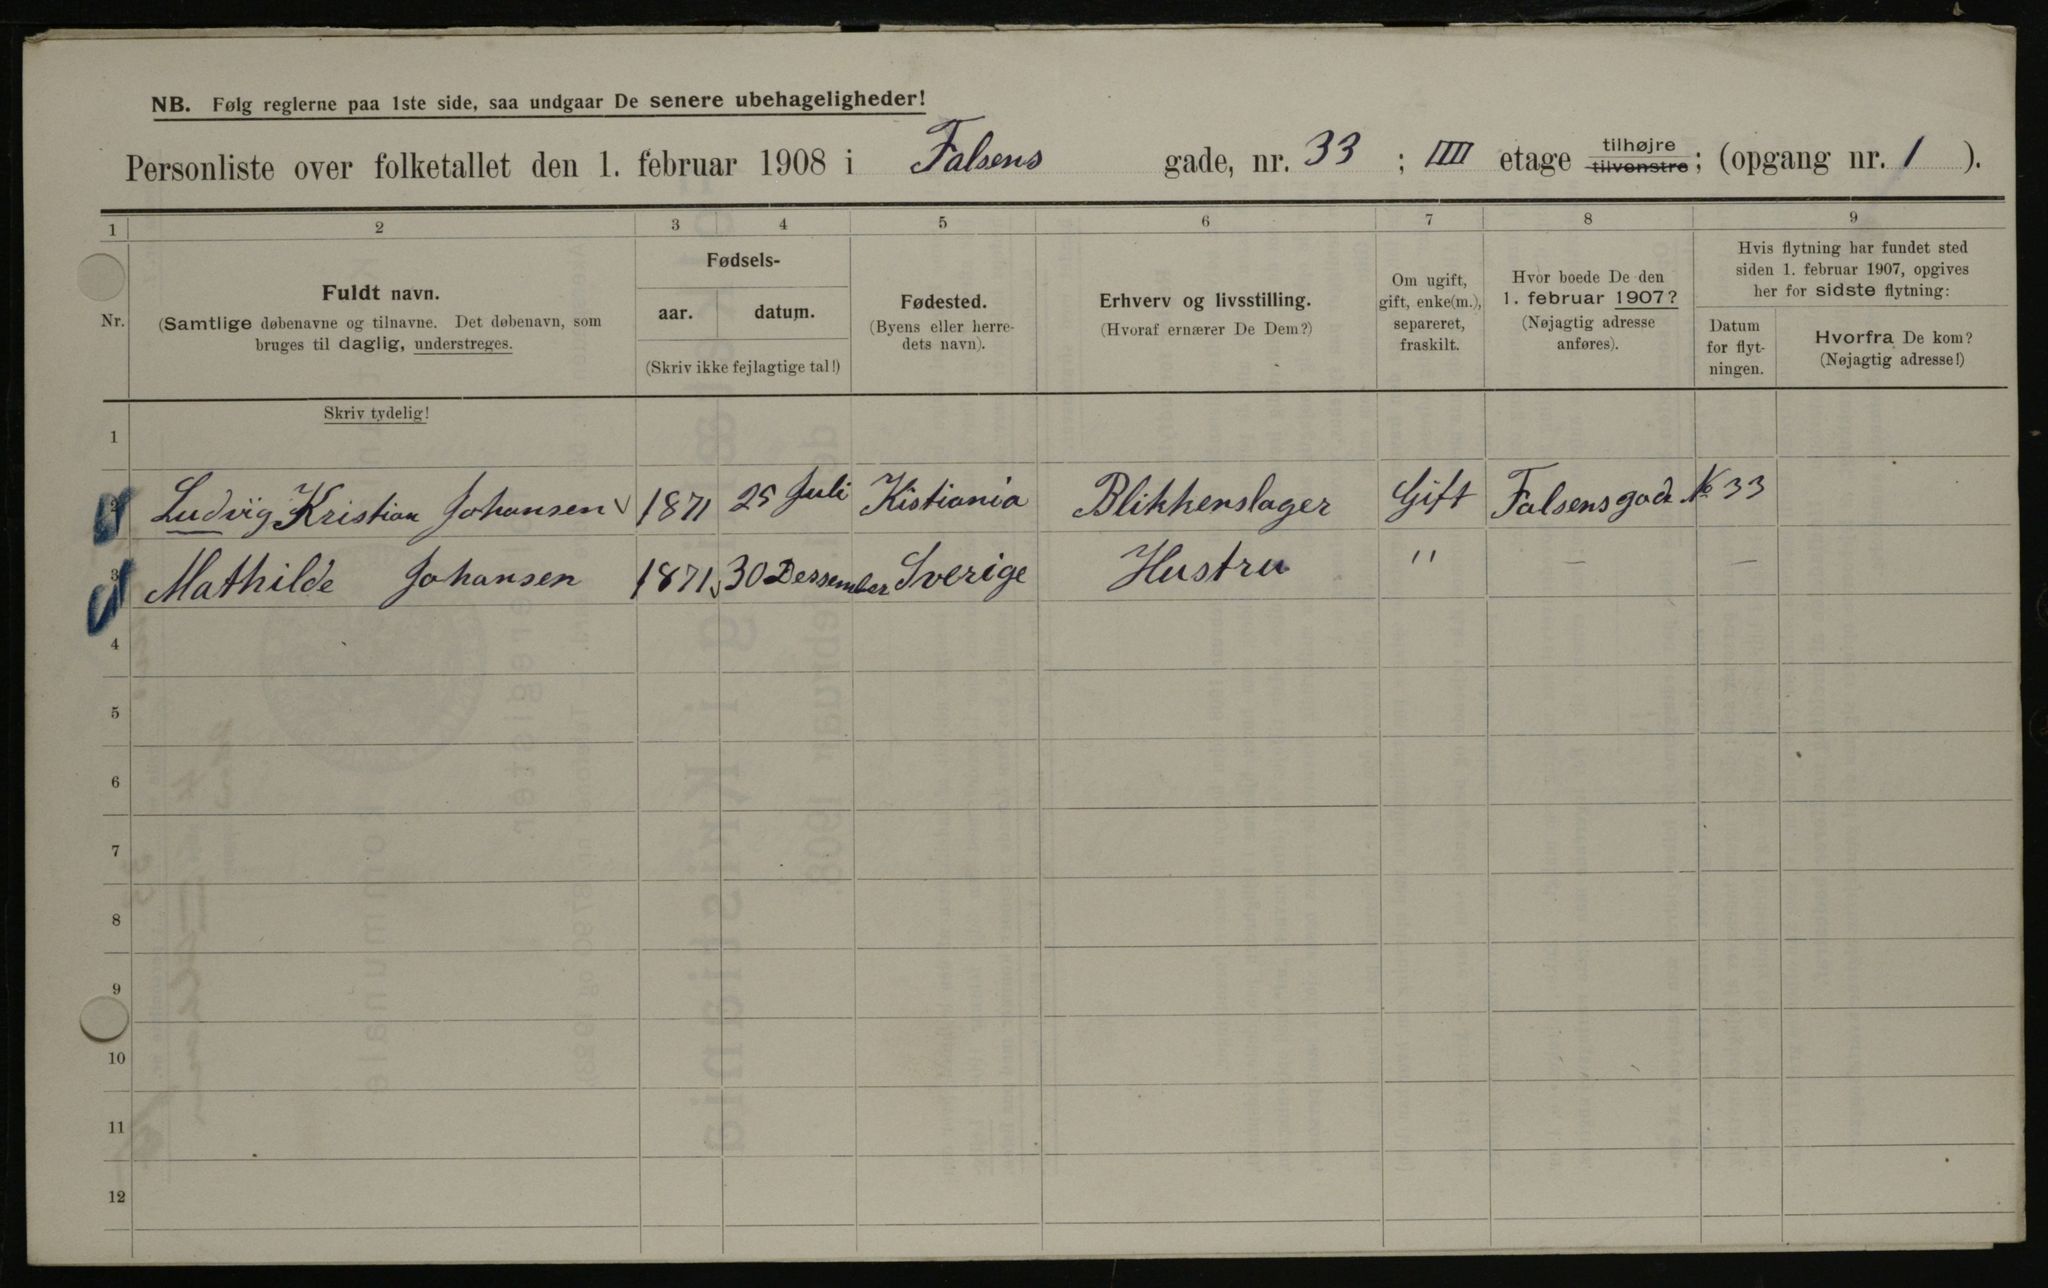 NB. Følg reglerne paa 1ste side, saa undgaar De senere ubehageligheder!
Personliste over folketallet den 1. februar 1908 i Falsens gade, nr. 33 ; IIII etage tilhøjre tilvenstre; (opgang nr. 1 ).
1 2 3 4 5 6 7 8 9
Nr.
Fuldt navn.
(Samtlige døbenavne og tilnavne. Det døbenavn, som
bruges til daglig, understreges.
Skriv tydelig!
Fødsels-
aar. datum.
(Skriv ikke fejlagtige tal!)
Fødested.
(Byens eller herre-
dets navn).
Erhverv og livsstilling.
(Hvoraf ernærer De Dem?)
Om ugift,
gift, enke(m.),
separeret,
fraskilt.
Hvor boede De den
1. februar 1907?
(Nøjagtig adresse
anføres).
Hvis flytning har fundet sted
siden 1. februar 1907, opgives
her for sidste flytning:
Datum
for flyt-
ningen.
Hvorfra De kom?
(Nøjagtig adresse!)
1
2 Ludvig Kristian Johansen 1871 25 Juli Kistiania Blikkenslager Gift Falsensgade № 33
3 Mathilde Johansen 1871 30 Dessember Sverige Hustru " — —
4
5
6
7
8
9
10
11
12